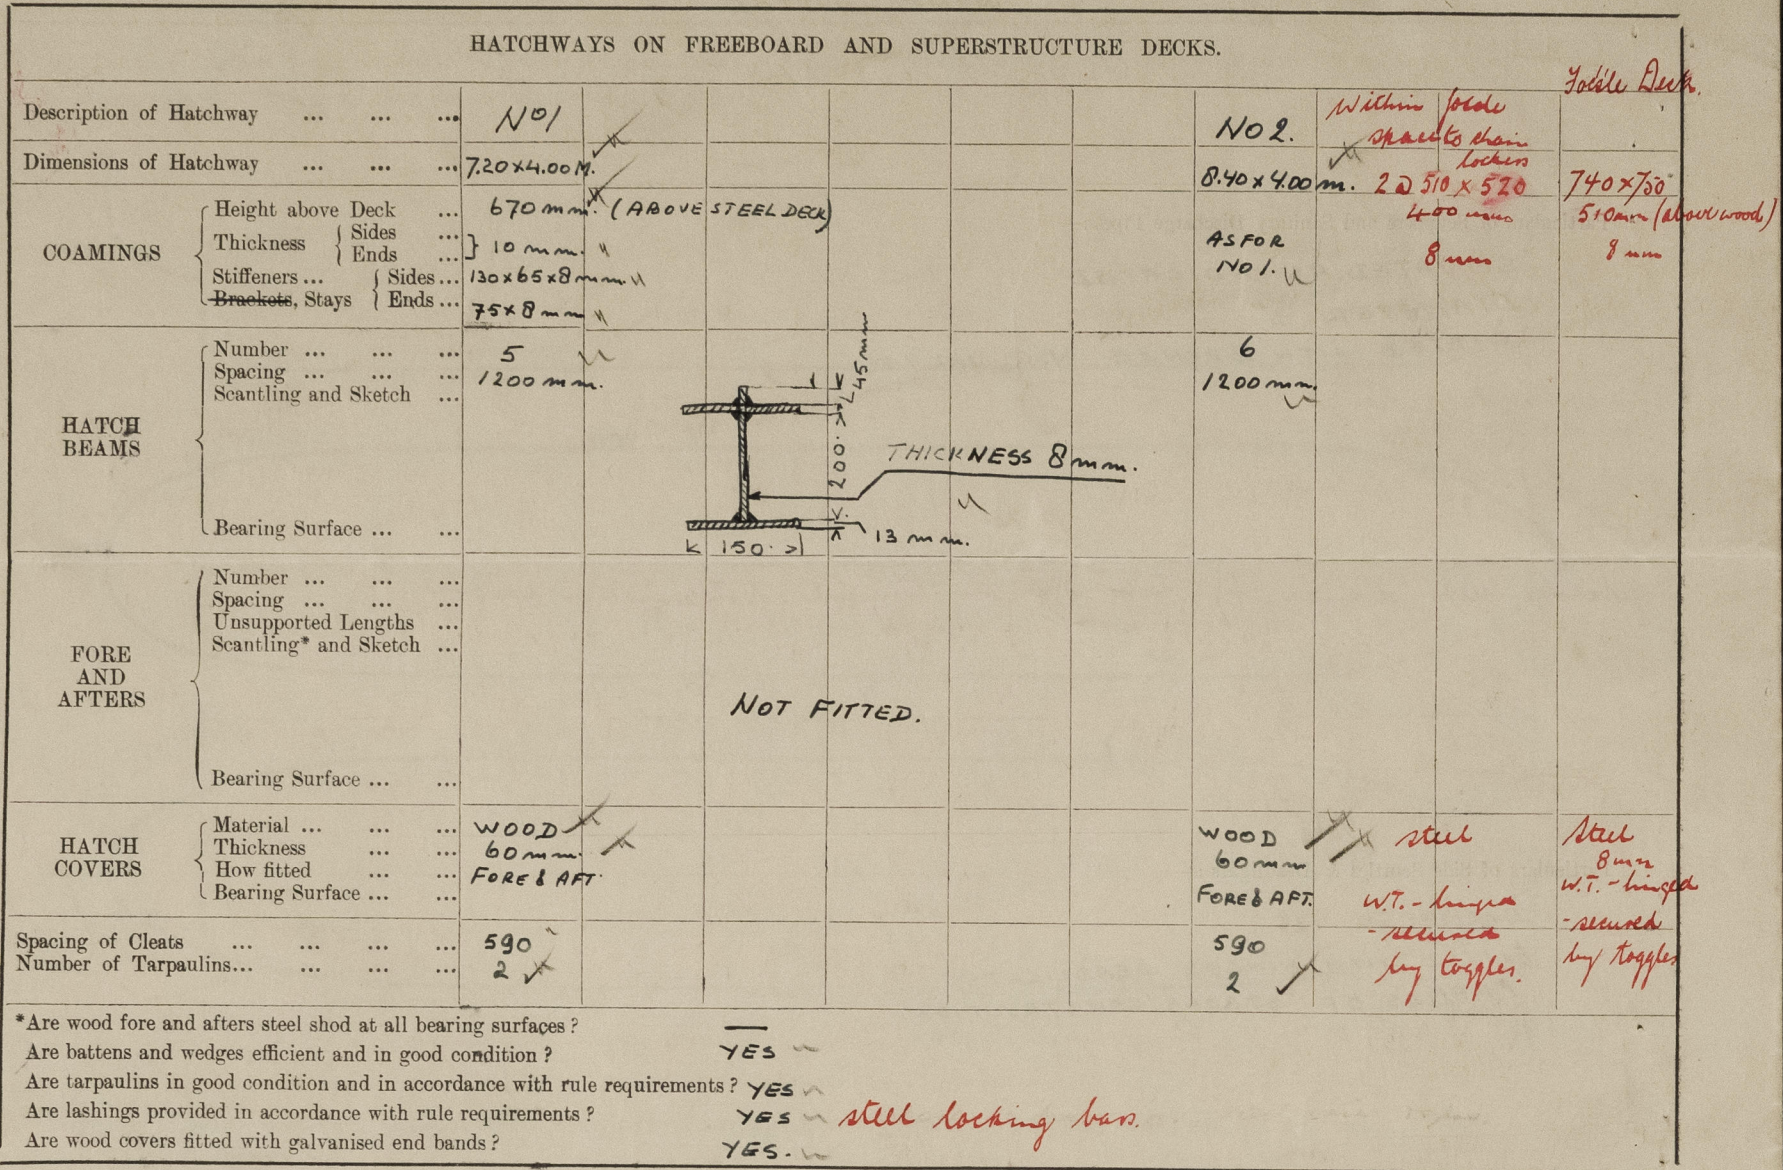 HATCHWAYS ON FREEBOARD AND SUPERSTRUCTURE DECKS.
Foc'sle Deck.
Description of Hatchway ... ... ... No1 No 2. Within focsle
space to chain
lockers
Dimensions of Hatchway ... ... ... 7.20 x 4.00 M. 8.40 x 4.00 m. 2 @ 510 x 520 740 x 750
COAMINGS
Height above Deck ... 670 mm. (ABOVE STEEL DECK) 400 mm 510mm (above wood)
Thickness { Sides ...
Ends ... } 10 mm. AS FOR No 1. 8 mm 8 mm
Stiffeners ... { Sides ... 130 x 65 x 8 mm
Brackets, Stays { Ends ... 75 x 8 mm
HATCH BEAMS
Number ... ... ... 5 6
Spacing ... ... ... 1200 mm. 1200 mm.
Scantling and Sketch ...
45 mm
200.
THICKNESS 8 mm.
13 mm.
150.
Bearing Surface ... ...
FORE AND AFTERS
Number ... ... ...
Spacing ... ... ...
Unsupported Lengths ...
Scantling* and Sketch ...
NOT FITTED.
Bearing Surface ... ...
HATCH COVERS
Material ... ... ... WOOD WOOD steel Steel
Thickness ... ... 60 mm. 60 mm 8 mm
How fitted ... ... FORE & AFT. FORE & AFT. W.T. - hinged W.T. - hinged
Bearing Surface ... ...
- secured - secured
by toggles. by toggles
Spacing of Cleats ... ... ... ... 590 590
Number of Tarpaulins... ... ... ... 2 2
*Are wood fore and afters steel shod at all bearing surfaces? —
Are battens and wedges efficient and in good condition? YES
Are tarpaulins in good condition and in accordance with rule requirements? YES
Are lashings provided in accordance with rule requirements? YES steel locking bars.
Are wood covers fitted with galvanised end bands? YES.